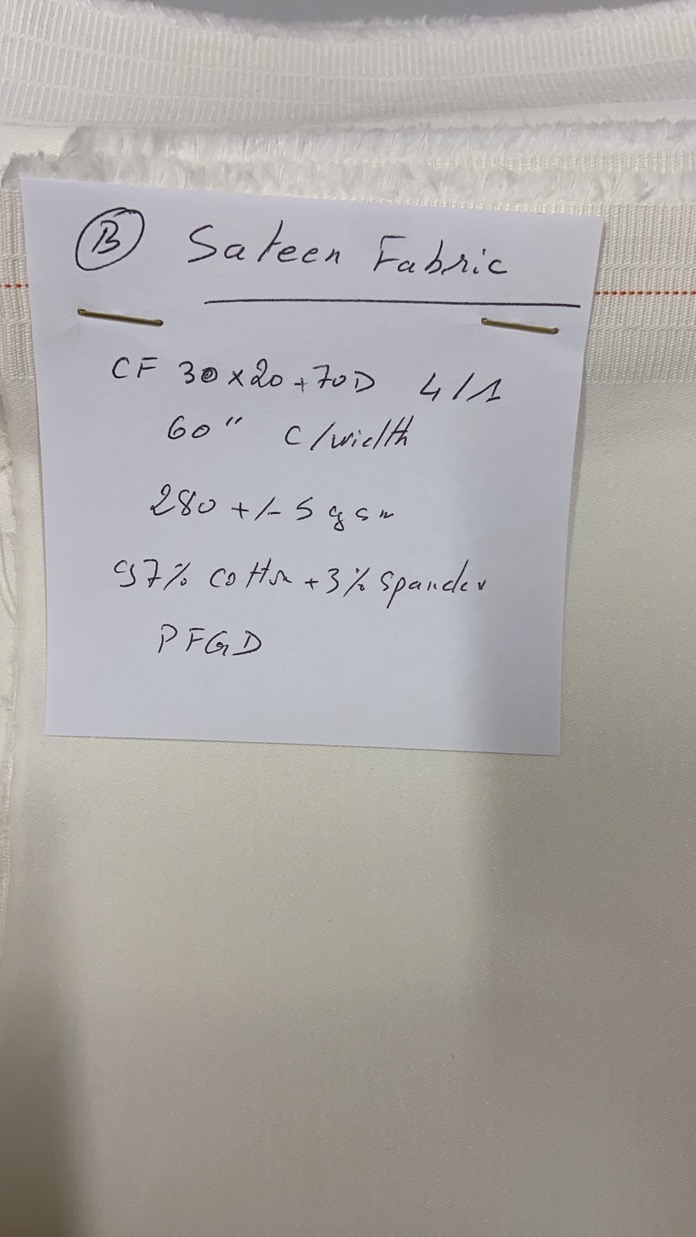 B Sateen Fabric
CF 30x20+70D 4/1
60" C/width
280 +/- 5 gsm
97% cotton + 3% Spandex
PFGD